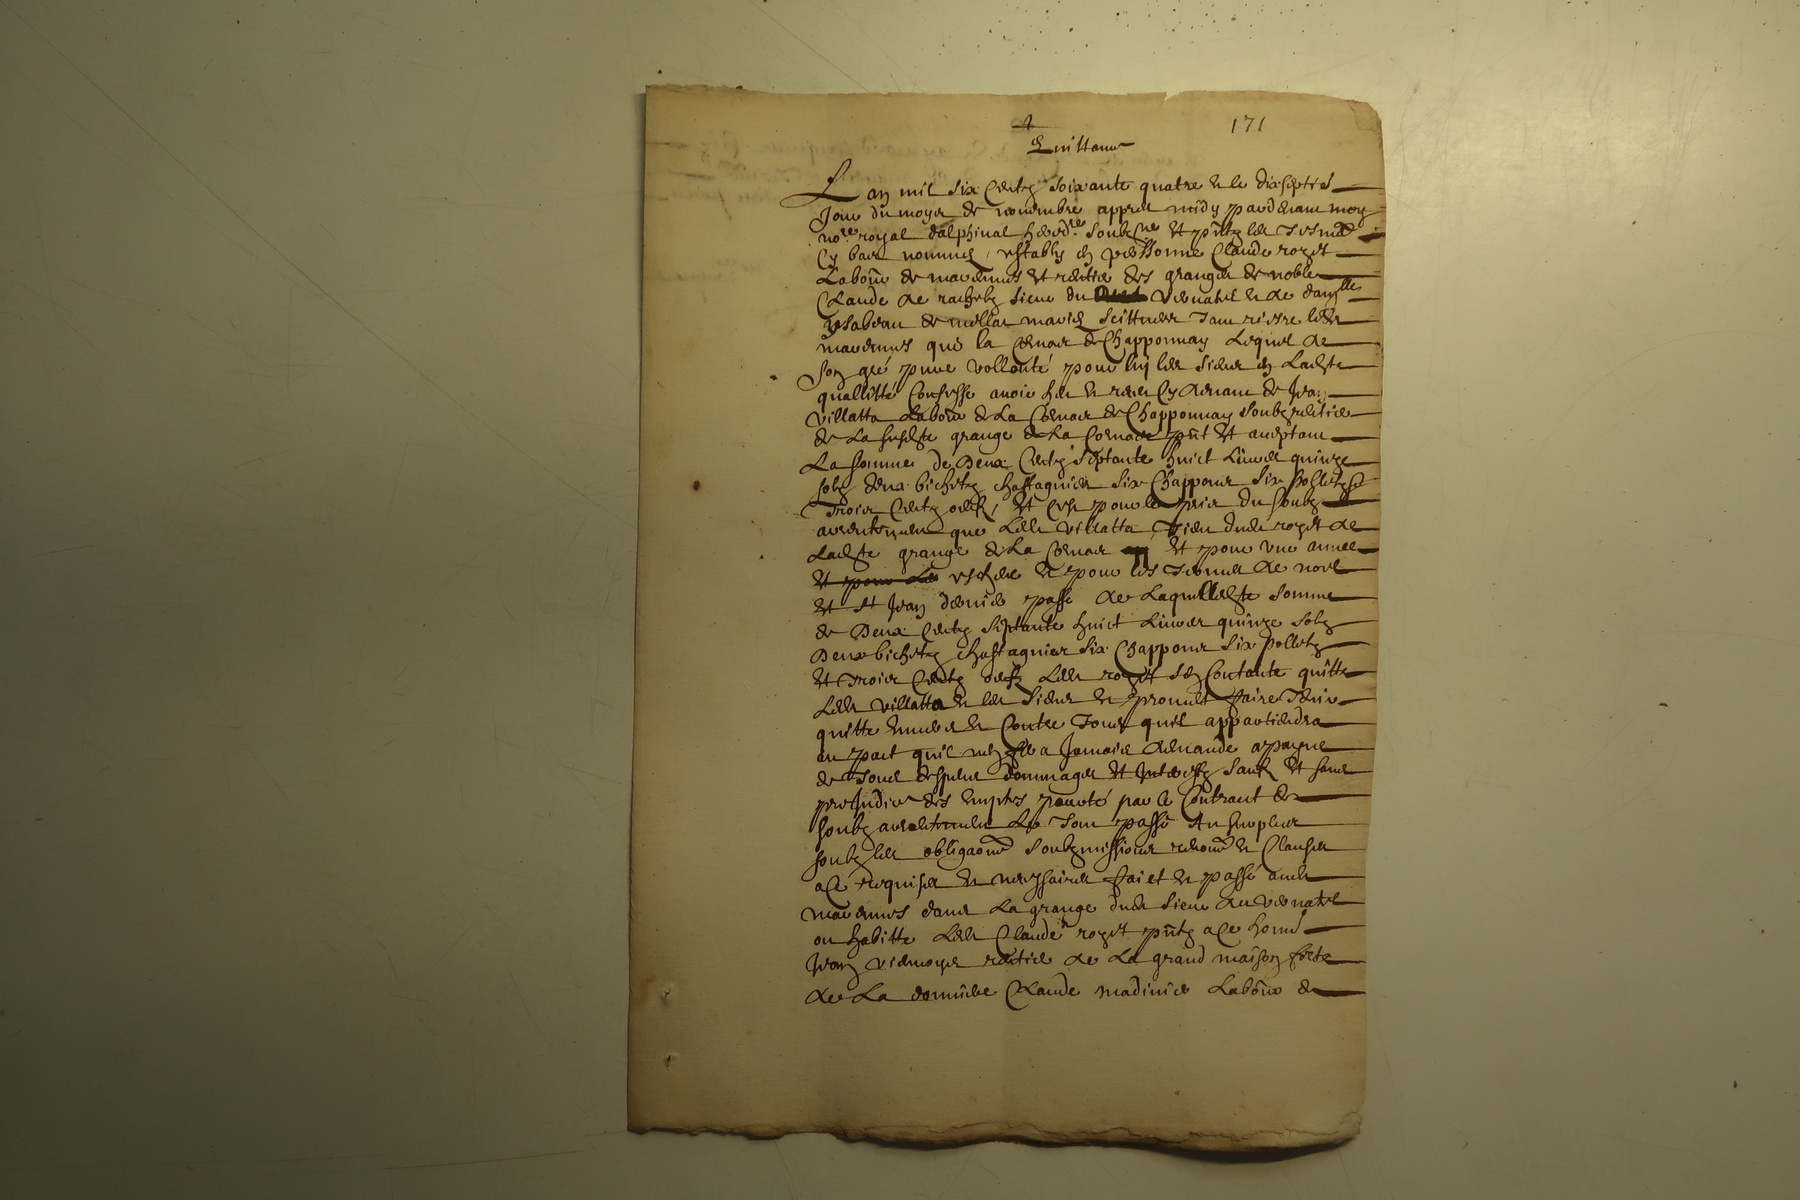 171
Quittance
L an mil six centz soixante quatre & le dixseptie
Jour du moys de novembre appres midy pardevant moy
no.re royal dalphinal heredre soubzne et pntz les tesmō
Cy bas nommes, establis en personne Claude roget
Labor de marennes et rentier des granges de noble
Claude de rachetz sieur du vernatel & de damlle
ysabeau de
marennes que la Cornas de Chapponnay Lequel de
son gré pure vollonté pour luy les siens en Ladte
quallitté Confesse avoir heu & receu Cy devant de Jean
villatta Labor de La Cornas de Chapponnay soubz rentier
de La susdte grange de La Cornas pnt et acceptant
La somme de Deux Centz septante huict Livres quinze
solz deux bichetz chastagnies six Chappons six polletz et
Trois Centz oeufz, et Cest pour le prix du soubz
arrentement que Ledt villatta Tient dudt roget de
Ladte grange de La Cornas et pour une annee
et pour les escheue & pour les Termes de noel
et st Jean dernier passe de Laquelledte somme
de Deux Centz septante huict Livres quinze solz
Deux bichetz chastagnies six Chappons six polletz
et Trois Centz oeufz Ledt roget sen Contante quitte
Ledt villatta & les siens & promet faire Tenir
quitte envers & Contre Tous quil appartiendra
au pact quil nen fera Jamais demande a payne
de Tous despens dommages et Interestz sauf et sans
prejudice des emples porté par le Contract de
soubz arrentement de Tout passé Au surplus
soubz les obligaons soubzmissions renons & Clauses
a ce requises & necessaires faict & passé audt
marennes dans La grange dudt sieur du vernatel
ou habitte Ledt Claude roget pntz a ce honn.
Jean viemoyes rentier de La grand maison forte
de La donniere Claude madinier Labor de